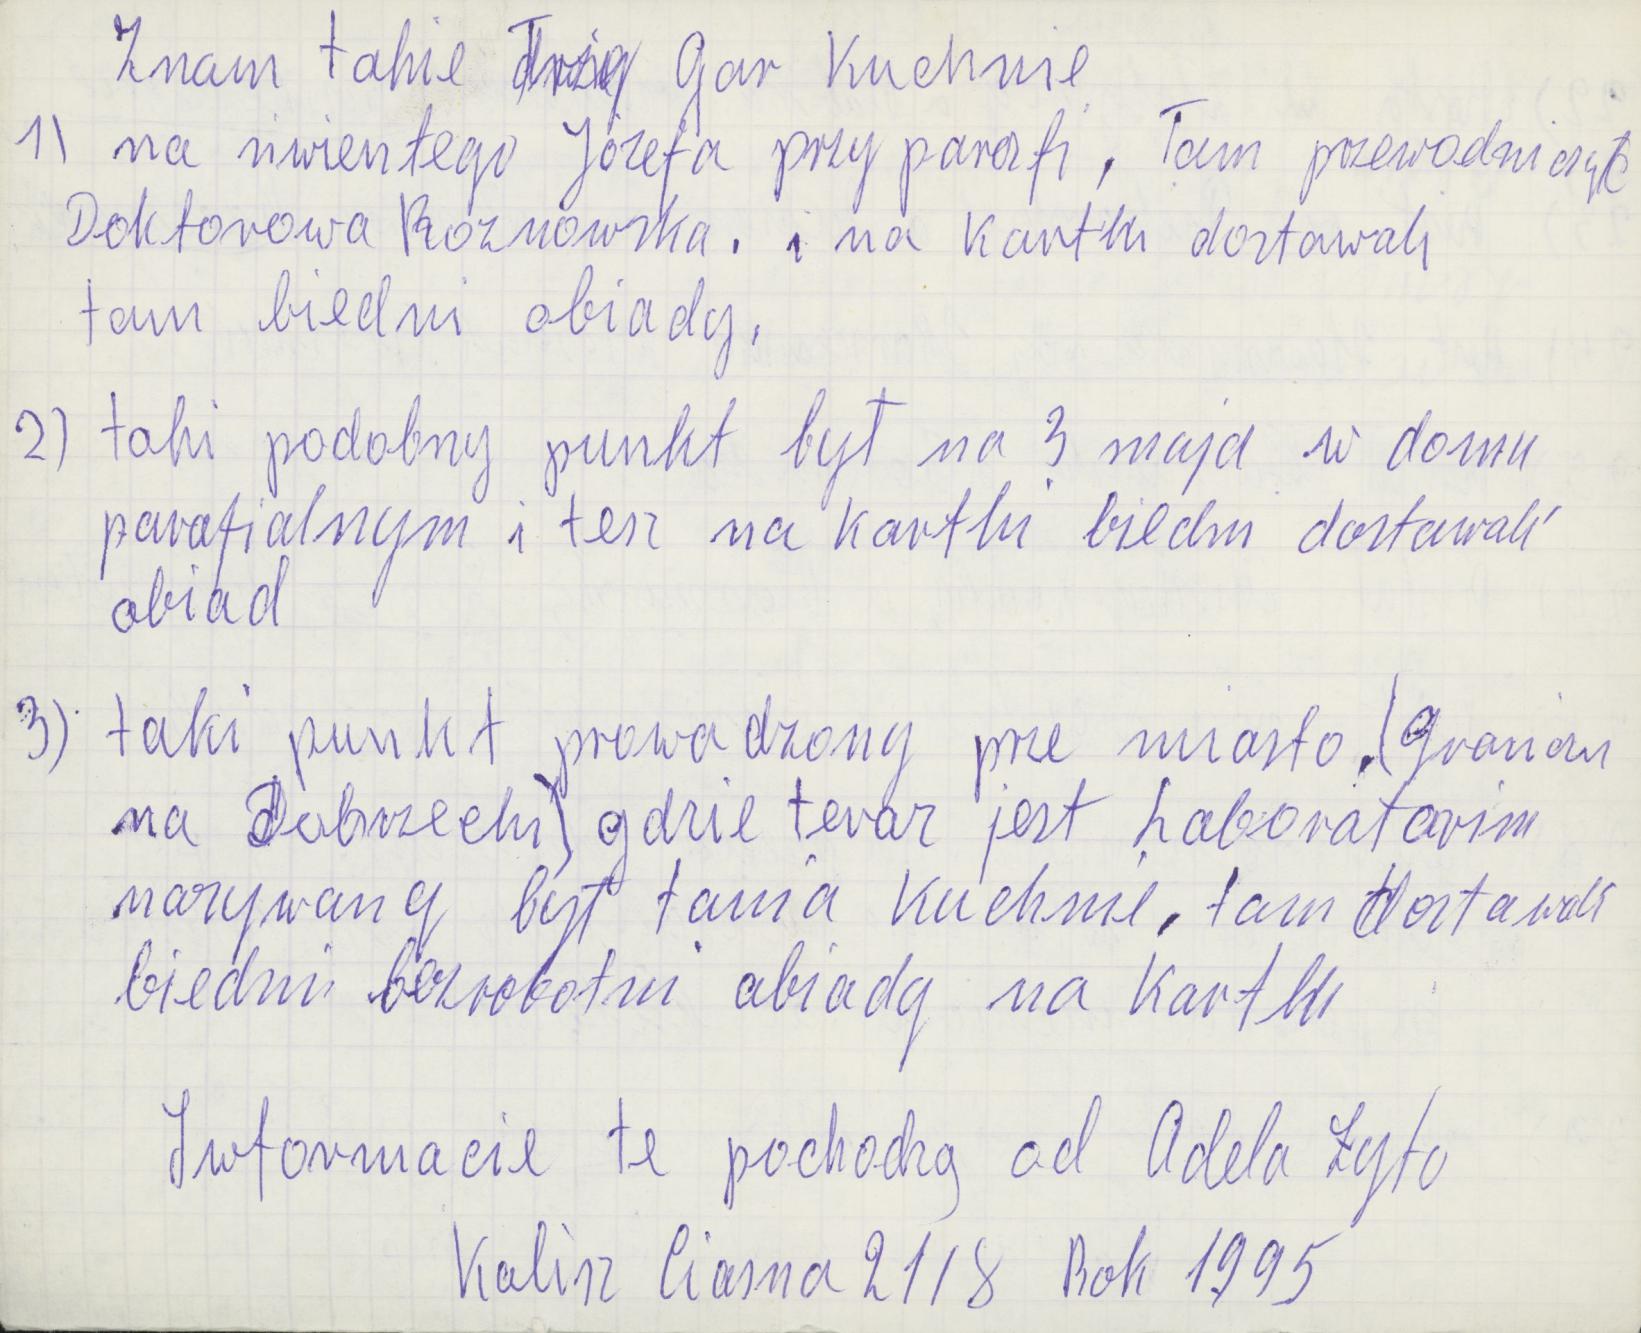 Znam takie trzy Gar Kuchnie
1) na świentego Józefa przy parafi, Tam przewodniczył
Doktorowa Roznowska. i na Kartki dostawali
tam biedni obiady,
2) taki podobny punkt był na 3 maja w domu
parafialnym i tesz na Kartki biedni dostawali
obiad
3) taki punkt prowadzony prze miasto. (
na Dobrzecki) gdzie teraz jest Laboratorim
nazywany był tania Kuchnie. tam dostawali
biedni bezrobotni obiady na Kartki
Informacie te pochodzą od Adela Żyto
Kalisz Ciasna 21/8 Rok 1995